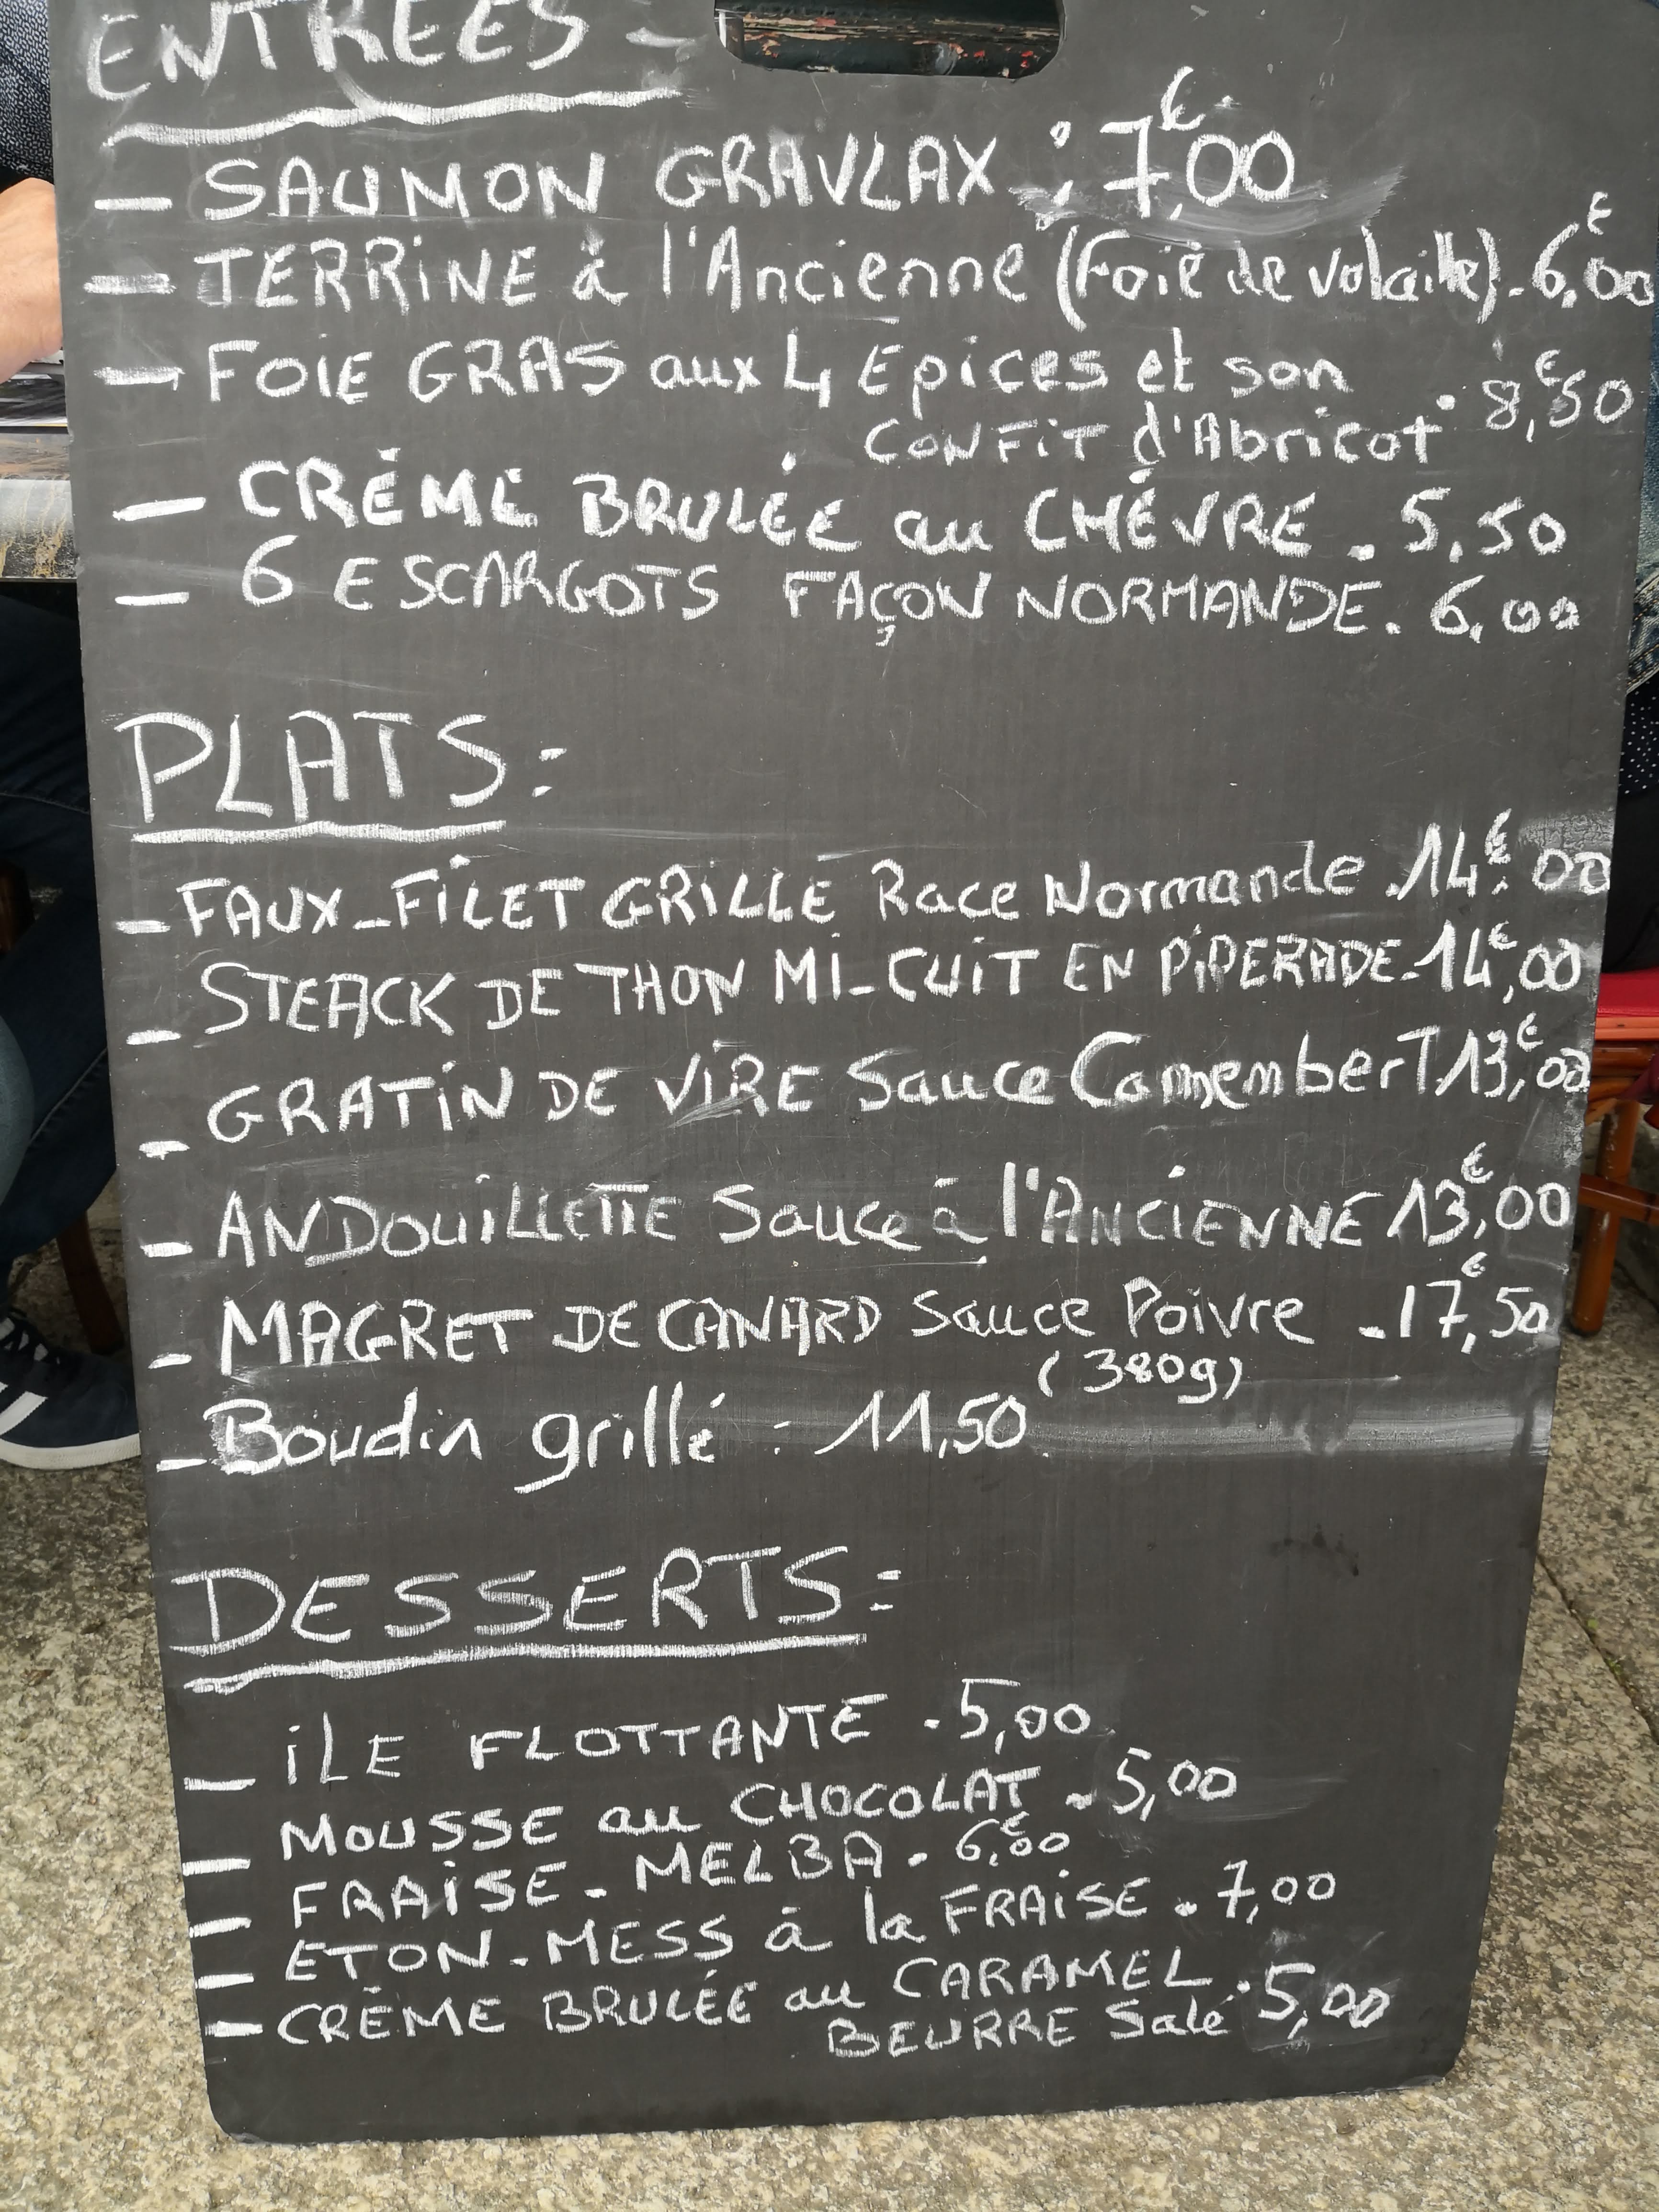 ENTRÉES -
- SAUMON GRAVLAX : 7,00 €
- TERRINE à l'Ancienne (Foie de volaille). 6,00 €
- FOIE GRAS aux 4 Epices et son
CONFIT d'Abricot . 8,50 €
- CRÈME BRULÉE au CHÈVRE . 5,50
- 6 ESCARGOTS FAÇON NORMANDE . 6,00
PLATS :
- FAUX-FILET GRILLÉ Race Normande . 14,00 €
- STEACK DE THON MI-CUIT EN PIPERADE - 14,00 €
- GRATIN DE VIRE Sauce CamemberT 13,00 €
- ANDOUILLETTE Sauce à l'ANCIENNE 13,00 €
- MAGRET DE CANARD Sauce Poivre - 17,50 €
(380g)
- Boudin grillé : 11,50
DESSERTS :
- iLE FLOTTANTE . 5,00
- MOUSSE au CHOCOLAT - 5,00
- FRAISE - MELBA . 6,00 €
- ETON-MESS à la FRAISE . 7,00
- CRÈME BRULÉE au CARAMEL
BEURRE Salé . 5,00